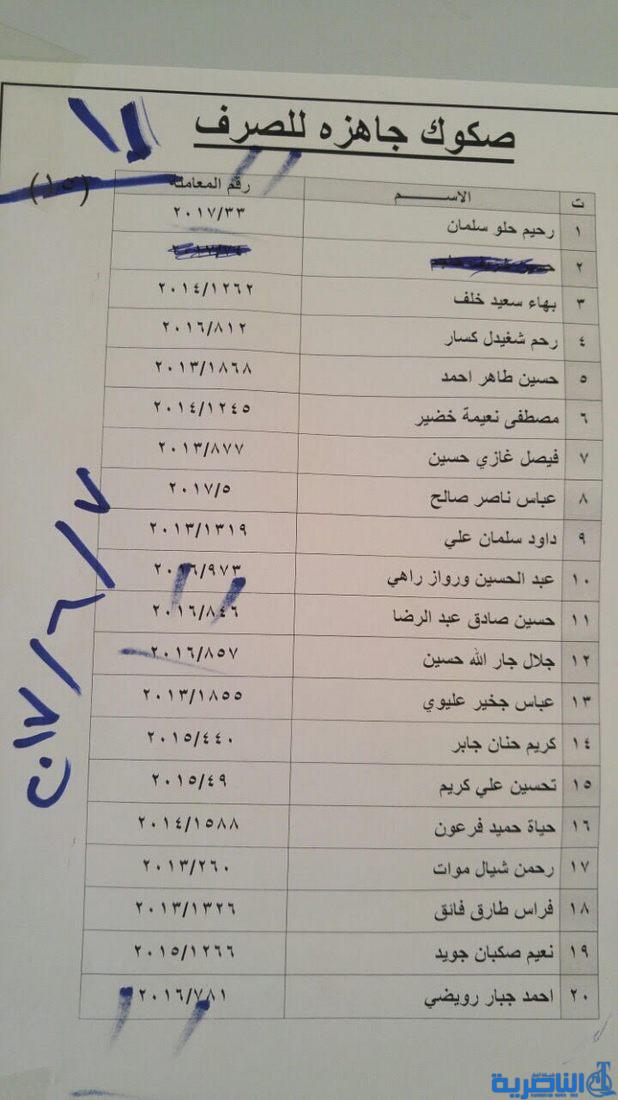 صكوك جاهزه للصرف
(١٥)
ت الاســـــم رقم المعاملة
١ رحيم حلو سلمان ٢٠١٧/٣٣
٢
٣ بهاء سعيد خلف ٢٠١٤/١٢٦٢
٤ رحم شغيدل كسار ٢٠١٦/٨١٢
٥ حسين طاهر احمد ٢٠١٣/١٨٦٨
٦ مصطفى نعيمة خضير ٢٠١٤/١٢٤٥
٧ فيصل غازي حسين ٢٠١٣/٨٧٧
٨ عباس ناصر صالح ٢٠١٧/٥
٩ داود سلمان علي ٢٠١٣/١٣١٩
١٠ عبد الحسين ورواز راهي ٢٠١٦/٩٧٣
١١ حسين صادق عبد الرضا ٢٠١٦/٨٤٦
١٢ جلال جار الله حسين ٢٠١٦/٨٥٧
١٣ عباس جخير عليوي ٢٠١٣/١٨٥٥
١٤ كريم حنان جابر ٢٠١٥/٤٤٠
١٥ تحسين علي كريم ٢٠١٥/٤٩
١٦ حياة حميد فرعون ٢٠١٤/١٥٨٨
١٧ رحمن شيال موات ٢٠١٣/٢٦٠
١٨ فراس طارق فائق ٢٠١٣/١٣٢٦
١٩ نعيم صكبان جويد ٢٠١٥/١٢٦٦
٢٠ احمد جبار رويضي ٢٠١٦/٧٨١
٢٠١٧/٦/٧
الناصرية